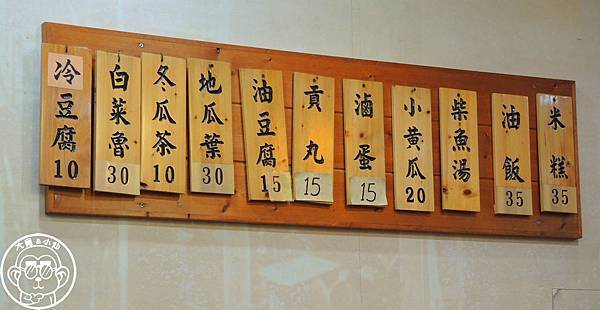 米糕 35
油飯 35
柴魚湯
小黃瓜 20
滷蛋 15
貢丸 15
油豆腐 15
地瓜葉 30
冬瓜茶 10
白菜魯 30
冷豆腐 10